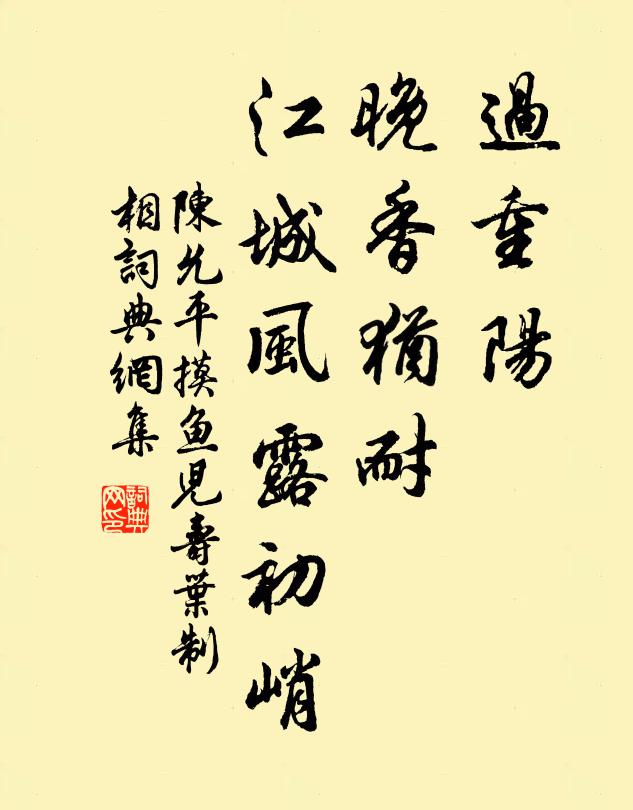 過重陽
晚香猶耐
江城風露初峭
陳允平摸魚兒壽葉制
相詞典網集
詞典
网印